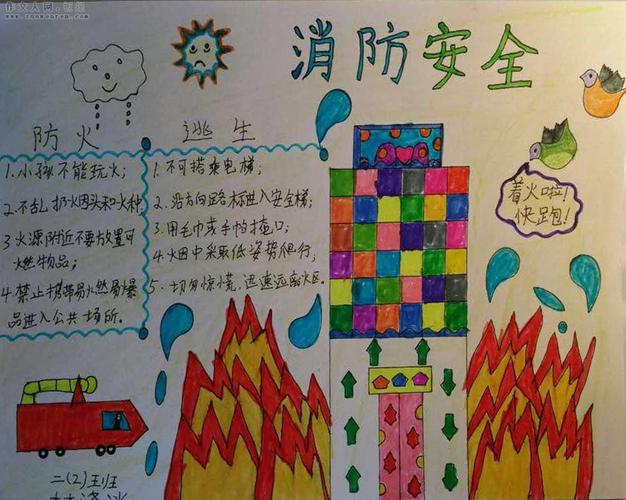 作文人网
消防安全
防火
1.小孩不能玩火;
2.不乱扔烟头和火种;
3火源附近不要放置可
燃物品;
4禁止携带易燃易爆
品进入公共场所。
逃生
1.不可搭乘电梯;
2.沿方向路标进入安全梯;
3.用毛巾或手帕掩口;
4.烟中采取低姿势爬行,
5.切勿惊慌,迅速远离火区.
着火啦!
快跑!
二(2)班